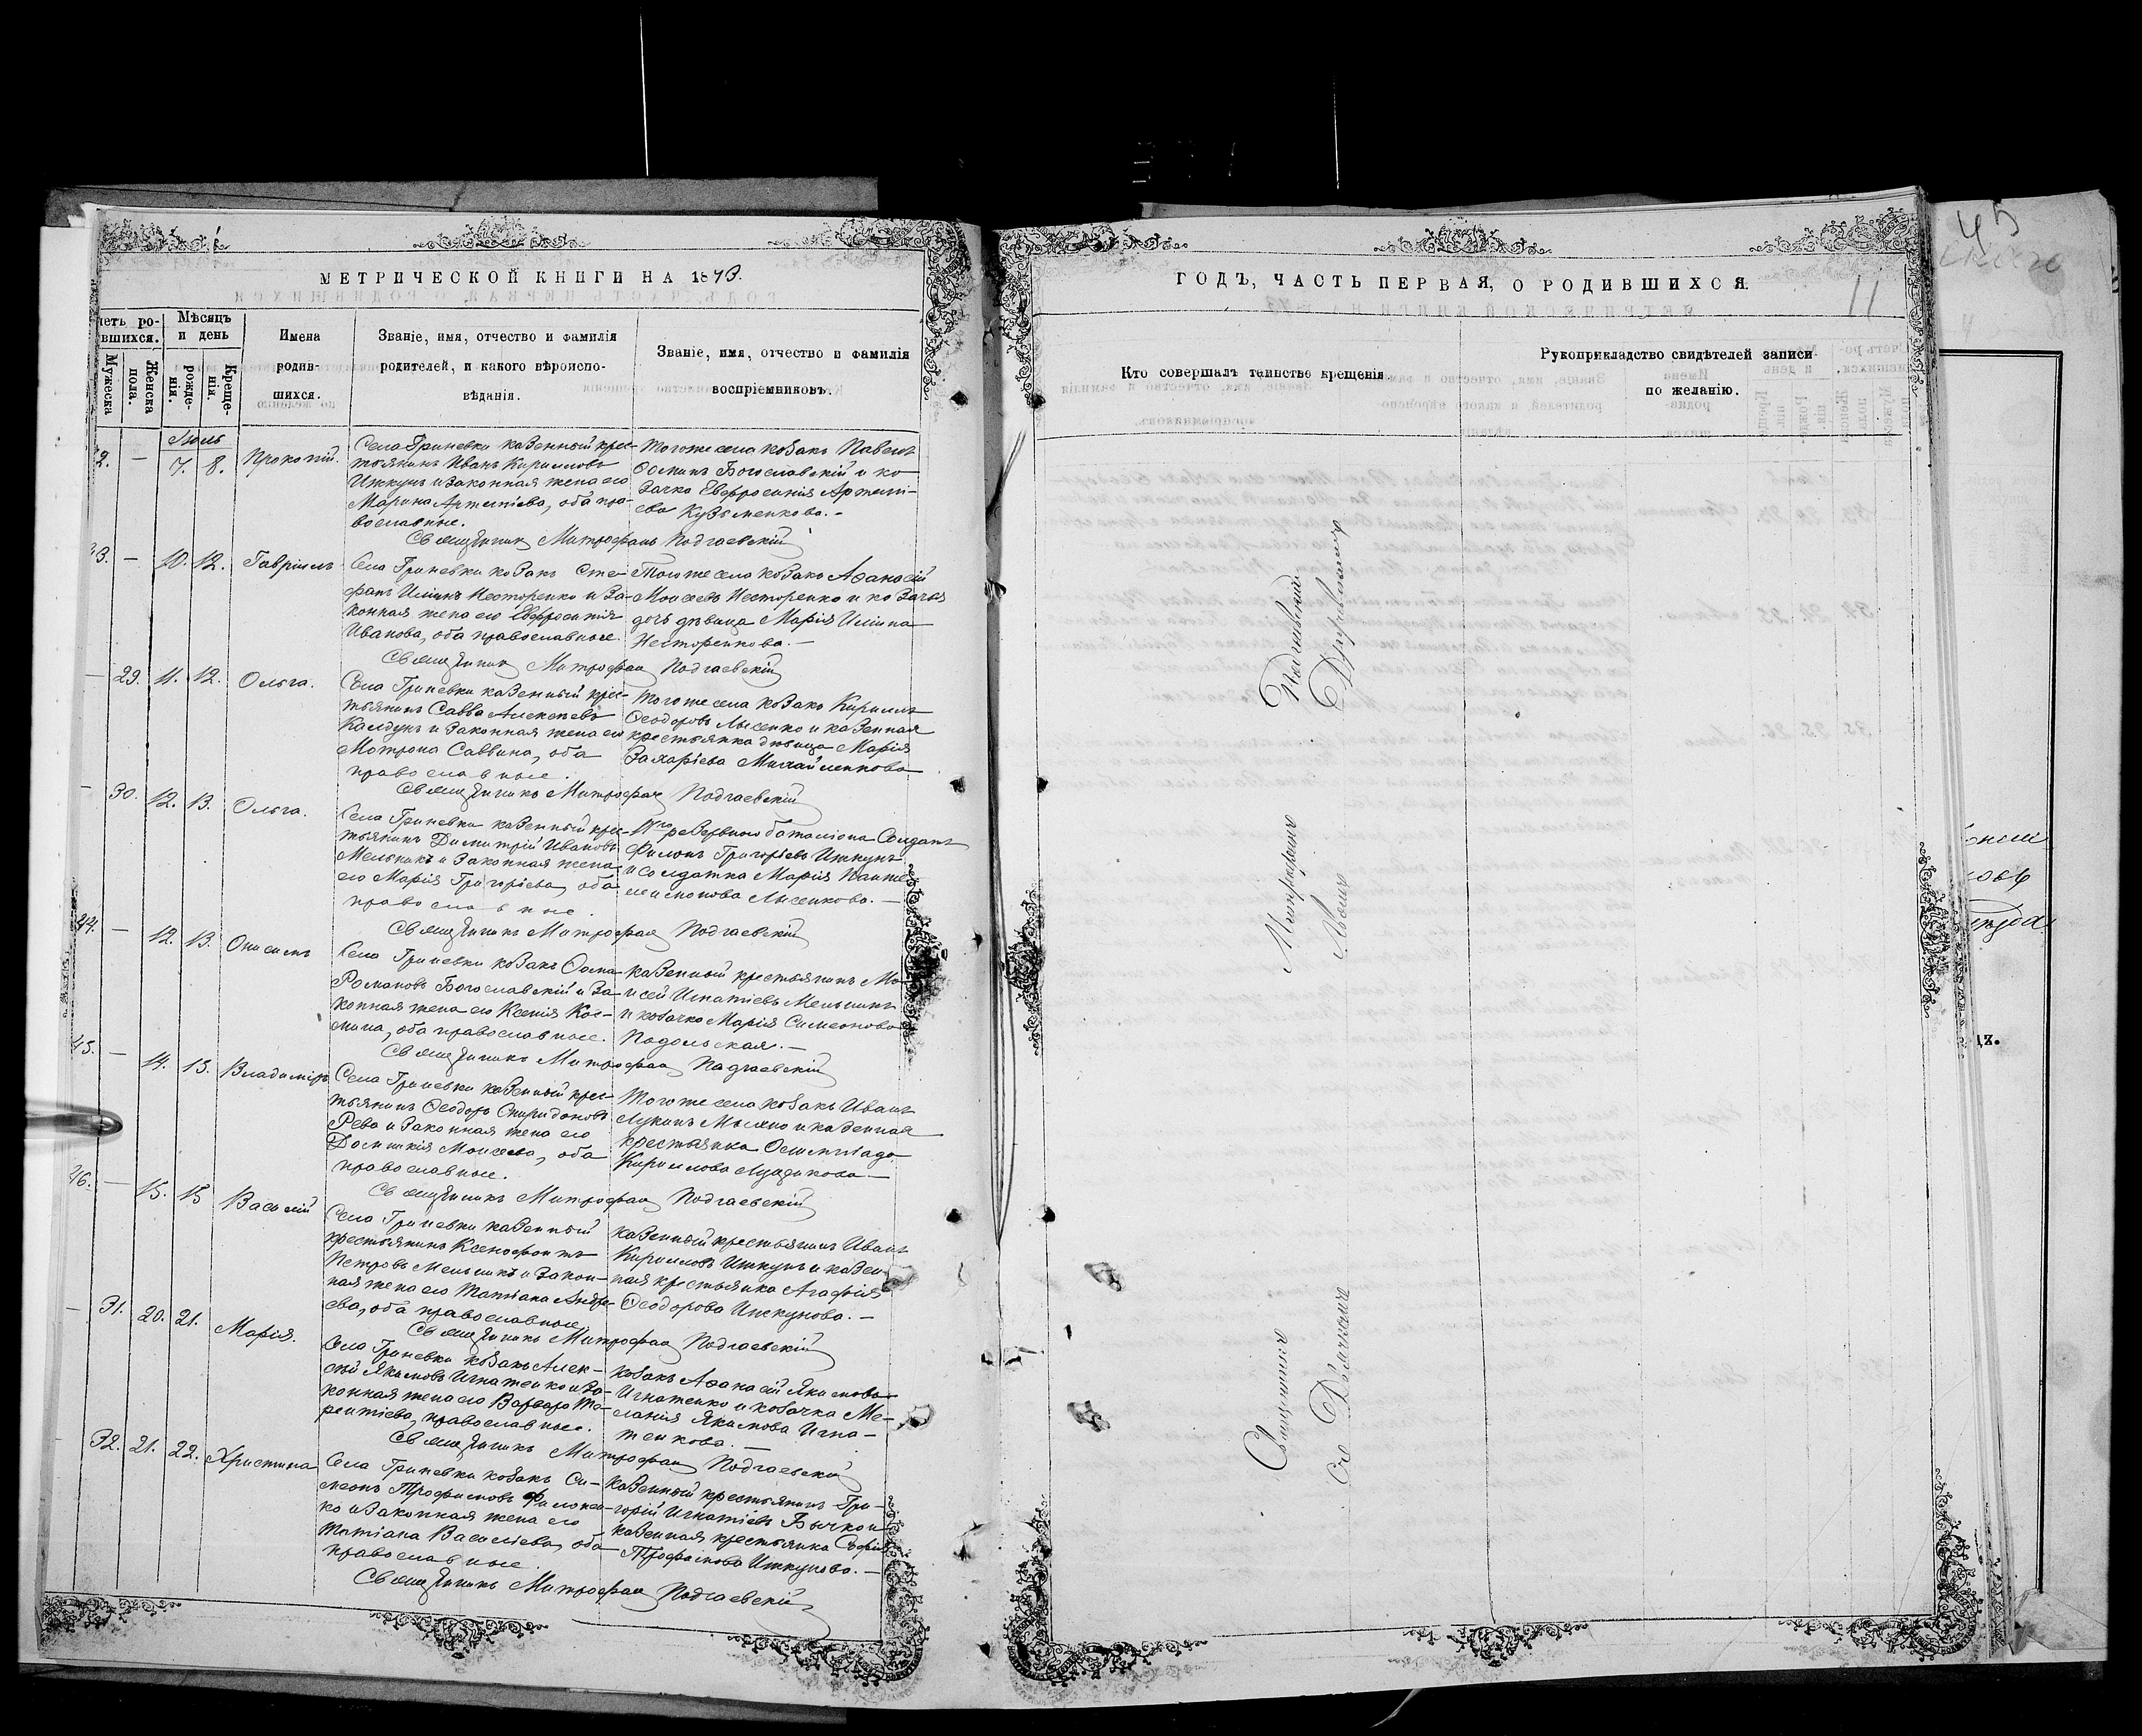 МЕТРИЧЕСКОЙ КНИГИ НА 1873.
четъ ро-
вшихся.
Мѣсяцъ
и день
Мужеска
Женска
пола.
рожде-
нія.
Креще-
нія.
Имена
родив-
шихся.
Званіе, имя, отчество и фамилія
родителей, и какого вѣроиспо-
вѣданія.
Званіе, имя, отчество и фамилія
воспріемниковъ.
Іюль
2. — 7. 8. Прокопій.
Села Гриневки казенный крес-
тьянинъ Иванъ Кирилловъ
Ижкунъ и законная жена его
Марина Артеміева, оба пра-
вославные.
Тогоже села козакъ Павелъ
Ѳоминъ Богославскій и ко-
зачка Евфросинія Артемі-
ева Кузьменкова. —
Священникъ Митрофанъ Подгаевскій
43. — 10. 12. Гавріилъ
Села Гриневки козакъ Сте-
фанъ Ильинъ Несторенко и за-
конная жена его Евфросинія
Иванова, оба православные.
Тогоже села козакъ Аѳанасій
Моисеевъ Несторенко и козачья
дочь дѣвица Марія Ильина
Несторенкова. —
Священникъ Митрофанъ Подгаевскій
— 29. 11. 12. Ольга.
Села Гриневки казенный крес-
тьянинъ Савва Алексѣевъ
Калдунъ и законная жена его
Мотрона Саввина, оба
православные.
Тогоже села козакъ Кириллъ
Ѳеодоровъ Лысенко и казенная
крестьянка дѣвица Марія
Захаріева Михайленкова
Священникъ Митрофанъ Подгаевскій
— 30. 12. 13. Ольга.
Села Гриневки казенный крес-
тьянинъ Димитрій Ивановъ
Мельникъ и законная жена
его Марія Григоріева, оба
православные.
резервного баталіона Солдатъ
Филонъ Григоріевъ Ижкунъ
и солдатка Марія Панте-
леимонова Лысенкова. —
Священникъ Митрофанъ Подгаевскій
44. — 12. 13. Онисимъ
Села Гриневки козакъ Ѳома
Романовъ Богославскій и за-
конная жена его Ксенія Кос-
мина, оба православные.
казенный крестьянинъ Мо-
исей Игнатіевъ Мельникъ
и козачка Марія Симеонова
Подольская. —
Священникъ Митрофанъ Подгаевскій
45. — 14. 15. Владиміръ
Села Гриневки казенный крес-
тьянинъ Ѳеодоръ Спиридоновъ
Рева и законная жена его
Домникія Моисеева, оба
православные.
Тогоже села козакъ Иванъ
Лукинъ и казенная
крестьянка Олимпіада
Кириллова
Священникъ Митрофанъ Подгаевскій
46. — 15. 15 Василій
Села Гриневки казенный
крестьянинъ Ксенофонтъ
Петровъ Мельникъ и закон-
ная жена его Татіана Андре-
ева, оба православные.
казенный крестьянинъ Иванъ
Кирилловъ Ижкунъ и казен-
ная крестьянка Агафія
Ѳеодорова Ижкунова. —
Священникъ Митрофанъ Подгаевскій
— 31. 20. 21. Марія.
Села Гриневки козакъ Алек-
сѣй Якимовъ Игнатенко и за-
конная жена его Варвара Те-
рентіева, православные.
козакъ Аѳанасій Якимовъ
Игнатенко и козачка Ме-
ланія Якимова Игна-
тенкова. —
Священникъ Митрофанъ Подгаевскій
— 32. 21. 22. Христина
Села Гриневки козакъ Си-
меонъ Трофимовъ Филонен-
ко и законная жена его
Татіана Василіева, оба
православные.
казенный крестьянинъ Гри-
горій Игнатіевъ Бычко и
казенная крестьянка Софія
Трофимова Ижкунова. —
Священникъ Митрофанъ Подгаевскій
ГОДЪ, ЧАСТЬ ПЕРВАЯ, О РОДИВШИХСЯ.
11
45
Кто совершалъ таинство крещенія.
Рукоприкладство свидѣтелей записи
по желанію.
Священникъ Митрофанъ Подгаевскій
съ Дьячкомъ